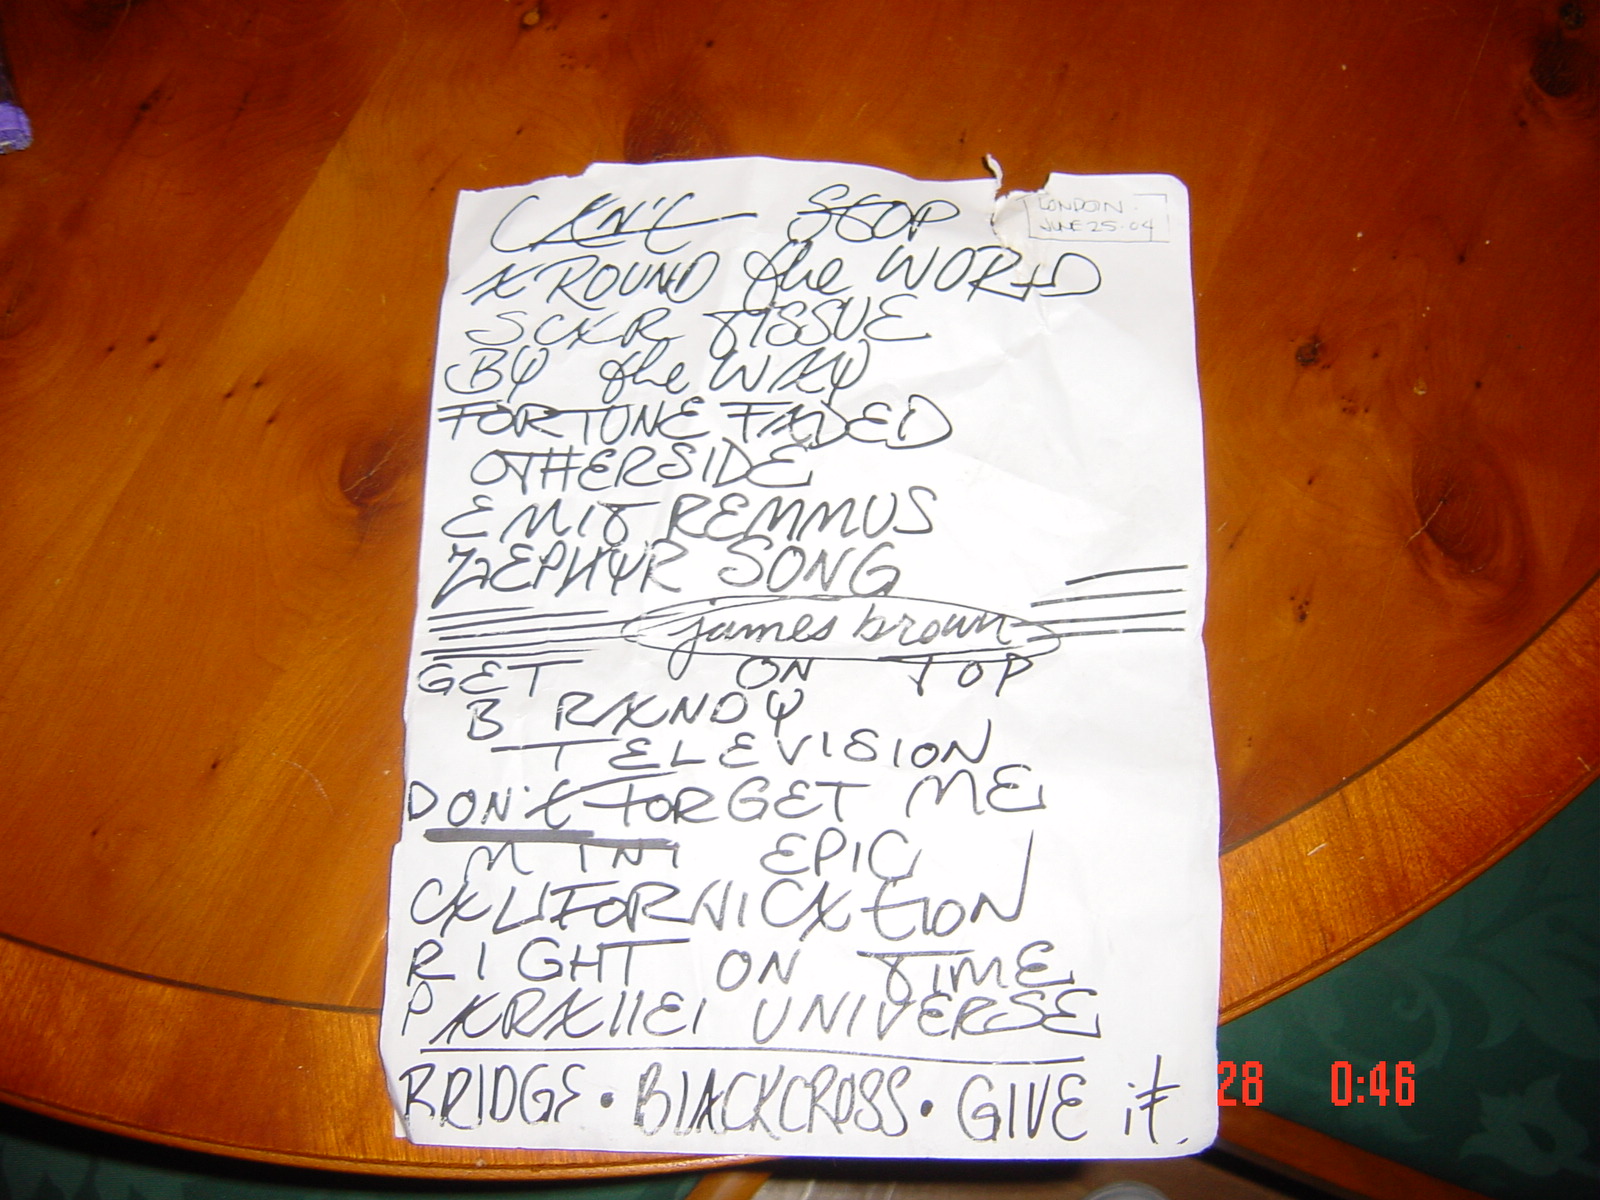 CAN'T STOP
LONDON.
JUNE 25.04
AROUND the WORLD
SCAR TISSUE
BY the WAY
FORTUNE FADED
OTHERSIDE
EMIT REMMUS
ZEPHYR SONG
james brown
GET ON TOP
BRANDY
TELEVISION
DON'T FORGET ME
MINI EPIC
CALIFORNICATION
RIGHT ON TIME
PARALLEL UNIVERSE
BRIDGE • BLACKCROSS • GIVE it.
28 0:46